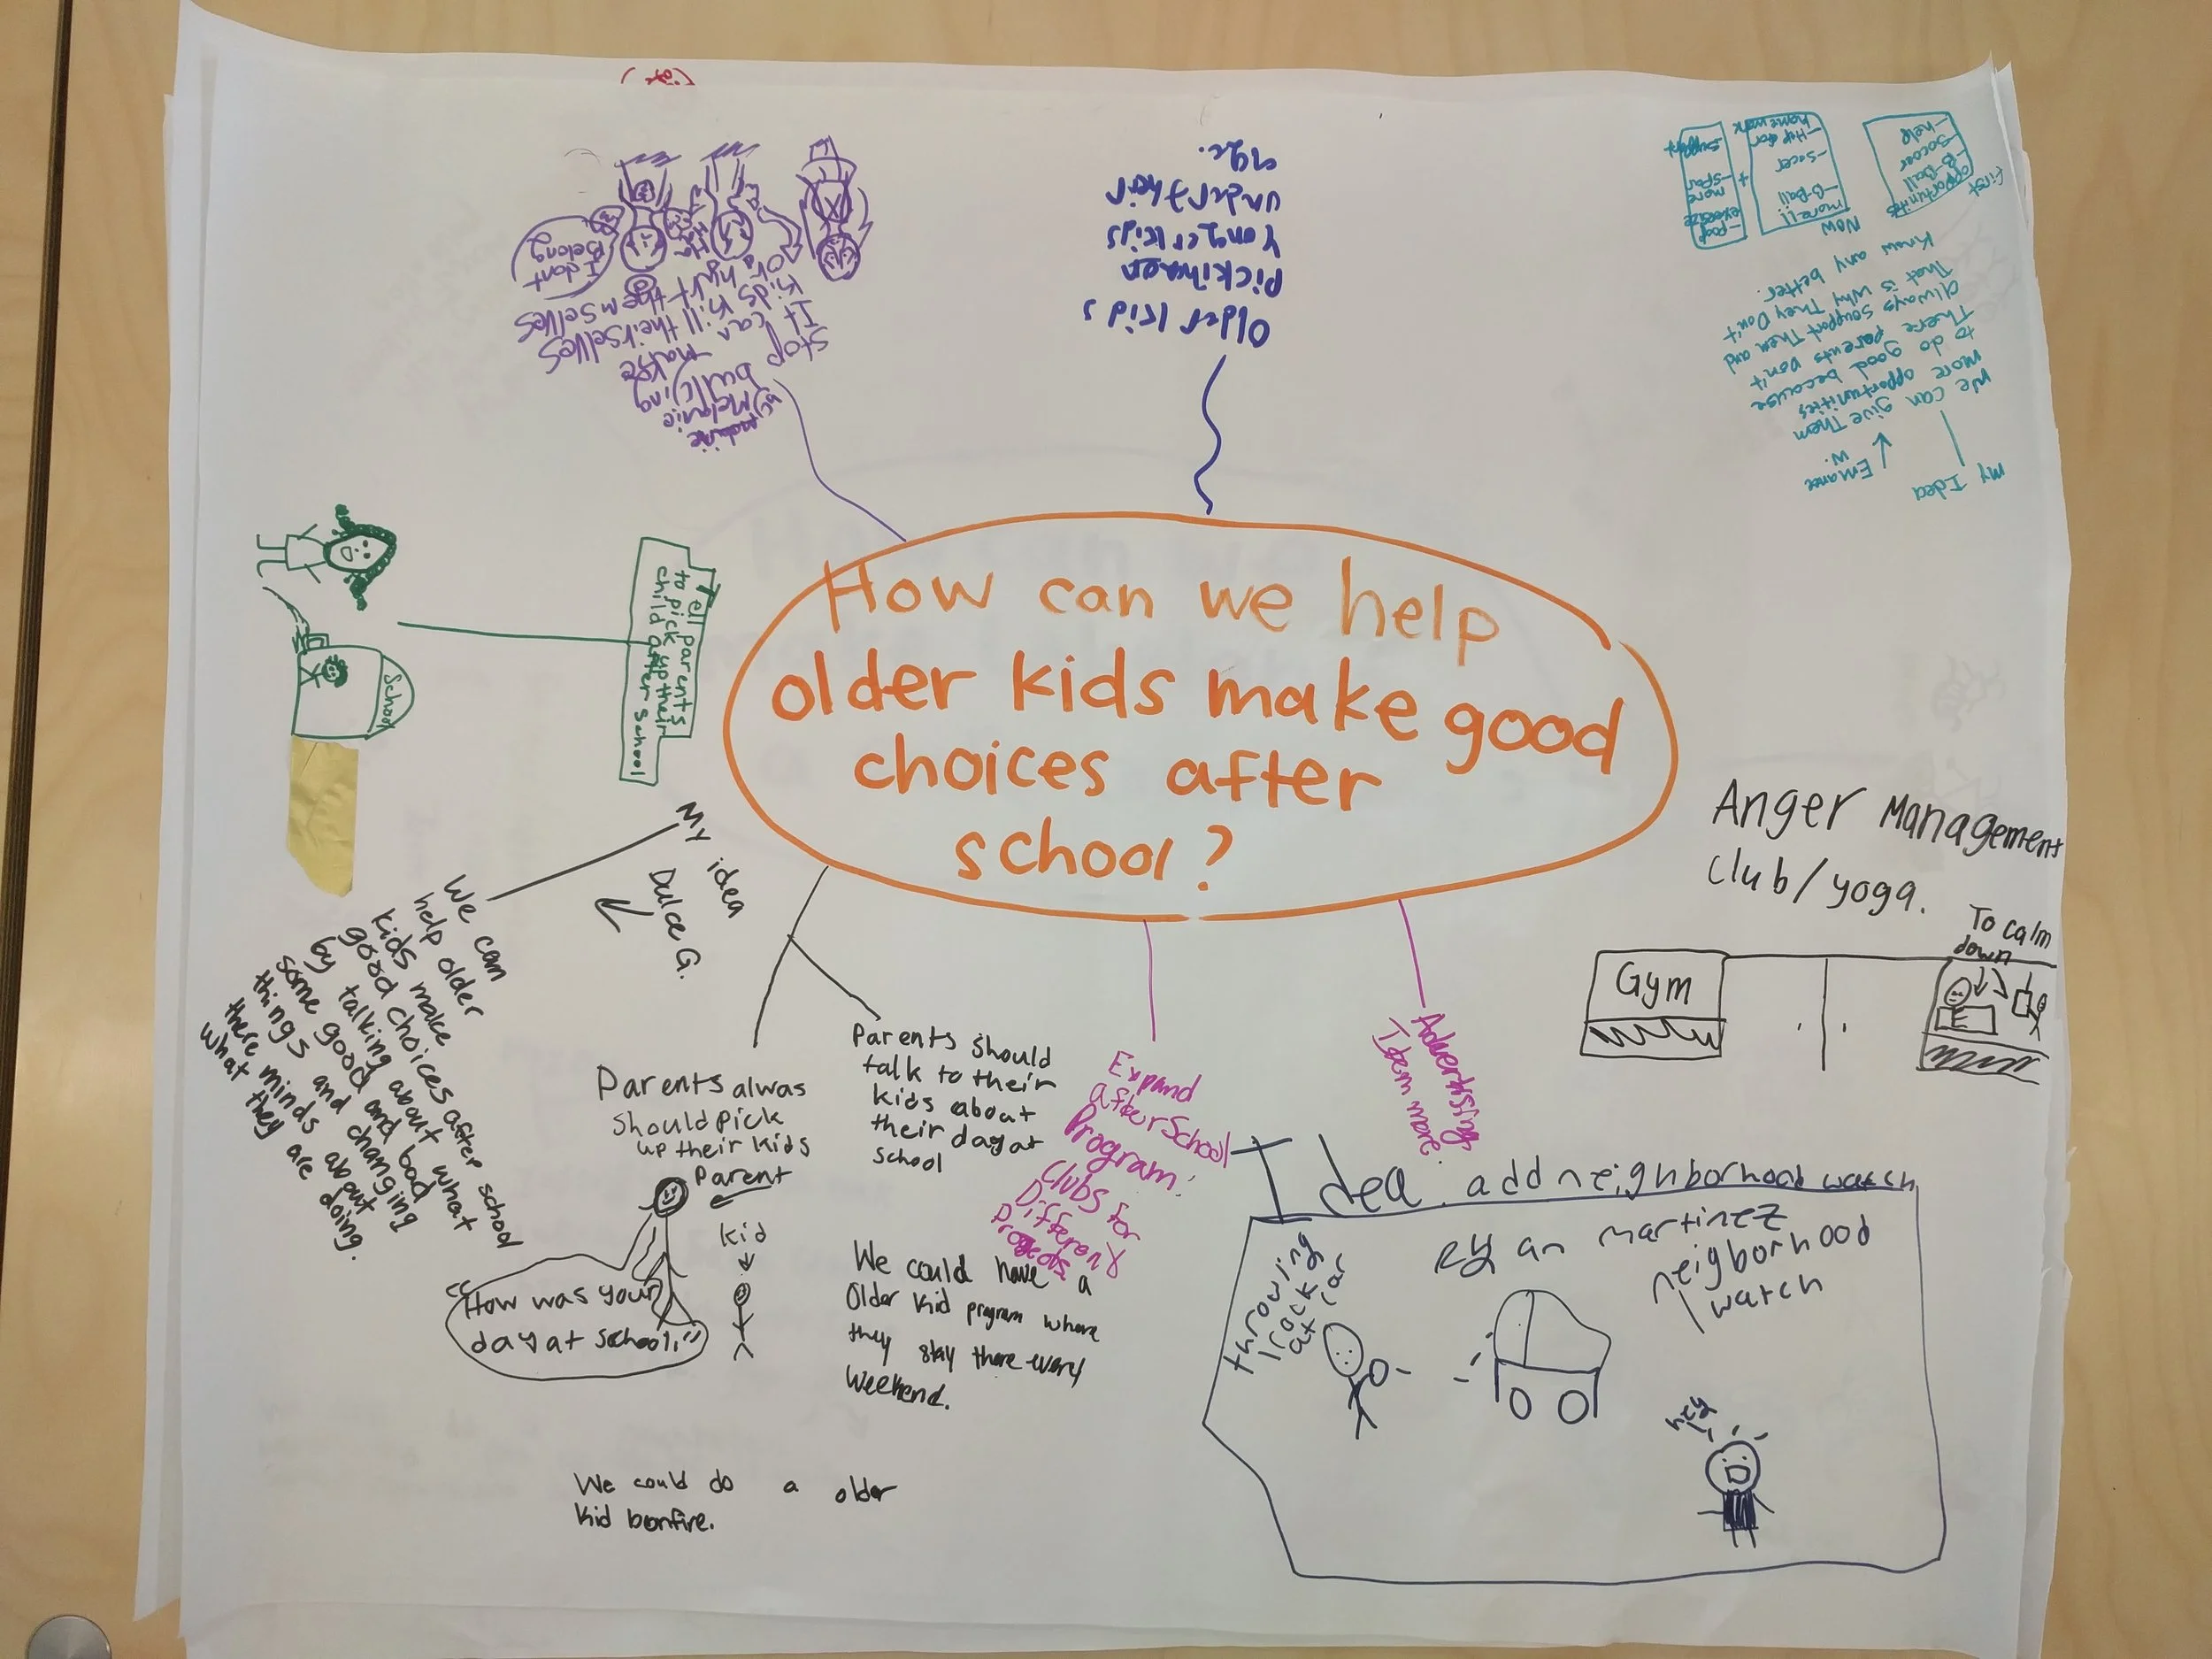 How can we help
older kids make good
choices after
school?
Older kids
Picking on
Yonger kids
under their
age.
Stop bullying
It can make
kids kill theirselles
or hurt themselles
I dont
Belong
My Idea
Emaree
W.
We can give Them
more opportunities
to do good because
There parents Don't
always support Them and
That is why They Don't
Know any better.
First
opportunites
-B-Ball
-Soccer
-help
Now
more!!
-B-Ball
-socer
-Help for
home work
+
-pool
exersize
more
-spar
-support
Tell parents
to pick up their
child after school
School
My idea
Dulce G.
We can
help older
kids make
good choices after school
by talking about what
some good and bad
things and changing
there minds about
what they are doing.
Parents alwas
should pick
up their kids
Parent
kid
"How was your
day at school."
Parents should
talk to their
kids about
their day at
school
Expand
after School
Program!
Clubs for
Different
Projects.
Advertising
Them more.
We could have a
Older kid program where
they stay there every
weekend.
We could do a older
kid bonfire.
Anger Management
club/yoga.
To calm
down
Gym
Idea. add neighborhood watch
Ryan martinez
neigborhood
watch
throwing
rock
at car
hey